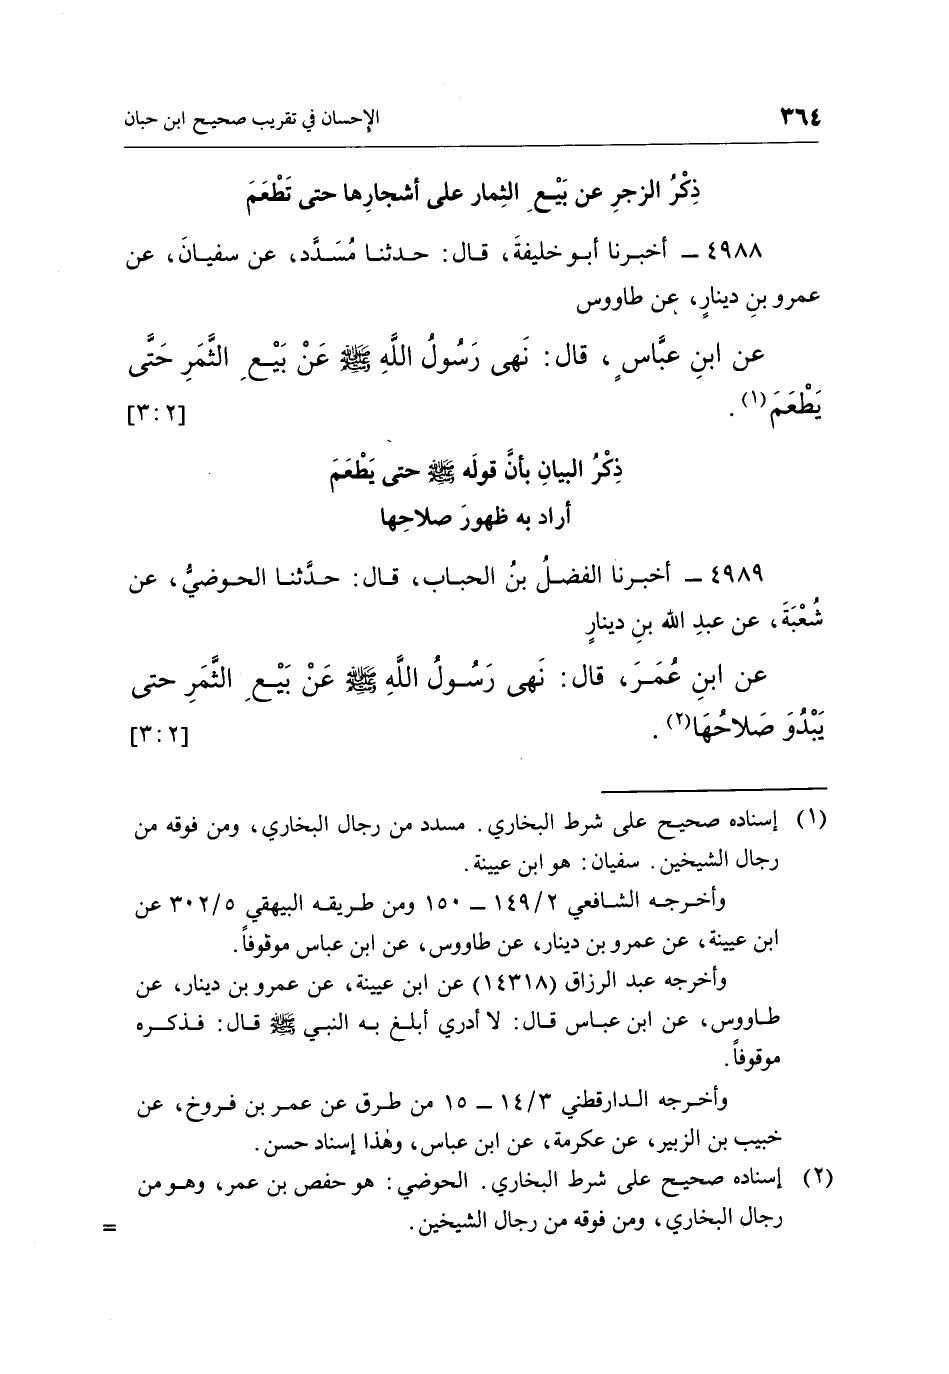 ٣٦٤ الإحسان في تقريب صحيح ابن حبان
ذِكْرُ الزجرِ عن بَيْعِ الثِمار على أشجارِها حتى تَطْعَمَ
٤٩٨٨ ــ أخبرنا أبو خليفةَ، قال: حدثنا مُسَدَّد، عن سفيانَ، عن
عمرو بنِ دينارٍ، عن طاووس
عن ابنِ عبَّاسٍ، قال: نَهى رَسُولُ اللَّهِ ﷺ عَنْ بَيْعِ الثَّمَرِ حَتَّى
يَطْعَمَ(١). [٣:٢]
ذِكْرُ البيانِ بأنَّ قولَه ﷺ حتى يَطْعَمَ
أراد به ظهورَ صلاحِها
٤٩٨٩ ــ أخبرنا الفضلُ بنُ الحباب، قال: حدَّثنا الحوضيُّ، عن
شُعْبَةَ، عن عبدِ الله بنِ دينارٍ
عن ابنِ عُمَرَ، قال: نَهى رَسُولُ اللَّهِ ﷺ عَنْ بَيْعِ الثَّمَرِ حتى
يَبْدُوَ صَلاحُهَا(٢). [٣:٢]
(١) إسناده صحيح على شرط البخاري. مسدد من رجال البخاري، ومن فوقه من
رجال الشيخين. سفيان: هو ابن عيينة.
وأخرجه الشافعي ١٤٩/٢ ــ ١٥٠ ومن طريقه البيهقي ٣٠٢/٥ عن
ابن عيينة، عن عمرو بن دينار، عن طاووس، عن ابن عباس موقوفاً.
وأخرجه عبد الرزاق (١٤٣١٨) عن ابن عيينة، عن عمرو بن دينار، عن
طاووس، عن ابن عباس قال: لا أدري أبلغ به النبي ﷺ قال: فذكره
موقوفاً.
وأخرجه الدارقطني ١٤/٣ ــ ١٥ من طرق عن عمر بن فروخ، عن
خبيب بن الزبير، عن عكرمة، عن ابن عباس، وهٰذا إسناد حسن.
(٢) إسناده صحيح على شرط البخاري. الحوضي: هو حفص بن عمر، وهو من
رجال البخاري، ومن فوقه من رجال الشيخين. =